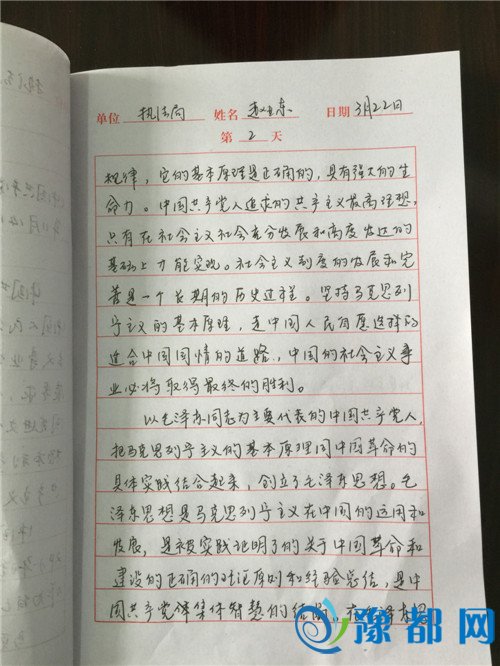 单位 执法局 姓名 赵东 日期 3月22日
第 2 天
规律，它的基本原理是正确的，具有强大的生
命力。中国共产党人追求的共产主义最高理想，
只有在社会主义社会充分发展和高度发达的
基础上才能实现。社会主义制度的发展和完
善是一个长期的历史过程。坚持马克思列
宁主义的基本原理，走中国人民自愿选择的
适合中国国情的道路，中国的社会主义事
业必将取得最终的胜利。
以毛泽东同志为主要代表的中国共产党人，
把马克思列宁主义的基本原理同中国革命的
具体实践结合起来，创立了毛泽东思想。毛
泽东思想是马克思列宁主义在中国的运用和
发展，是被实践证明了的关于中国革命和
建设的正确的理论原则和经验总结，是中
国共产党集体智慧的结晶。在毛泽东思
豫都网